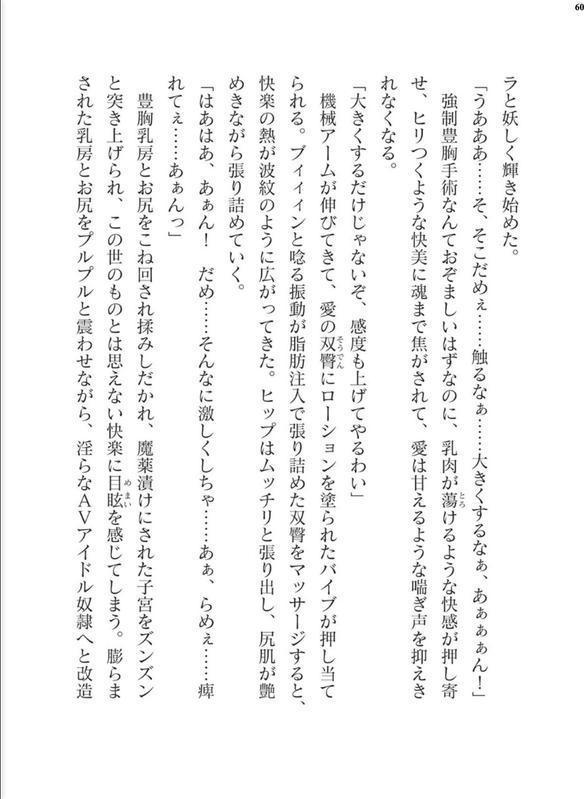 60
ラと妖しく輝き始めた。
「うあああ……そ、そこだめぇ……触るなぁ……大きくするなぁ、あぁぁぁん！」
強制豊胸手術なんておぞましいはずなのに、乳肉が蕩けるような快感が押し寄
せ、ヒリつくような快美に魂まで焦がされて、愛は甘えるような喘ぎ声を抑えき
れなくなる。
「大きくするだけじゃないぞ、感度も上げてやるわい」
機械アームが伸びてきて、愛の双臀にローションを塗られたバイブが押し当て
られる。ブィィィンと唸る振動が脂肪注入で張り詰めた双臀をマッサージすると、
快楽の熱が波紋のように広がってきた。ヒップはムッチリと張り出し、尻肌が艶
めきながら張り詰めていく。
「はあはあ、あぁん！　だめ……そんなに激しくしちゃ……あぁ、らめぇ……痺
れてぇ……あぁんっ」
豊胸乳房とお尻をこね回され揉みしだかれ、魔薬漬けにされた子宮をズンズン
と突き上げられ、この世のものとは思えない快楽に目眩を感じてしまう。膨らま
された乳房とお尻をプルプルと震わせながら、淫らなＡＶアイドル奴隷へと改造